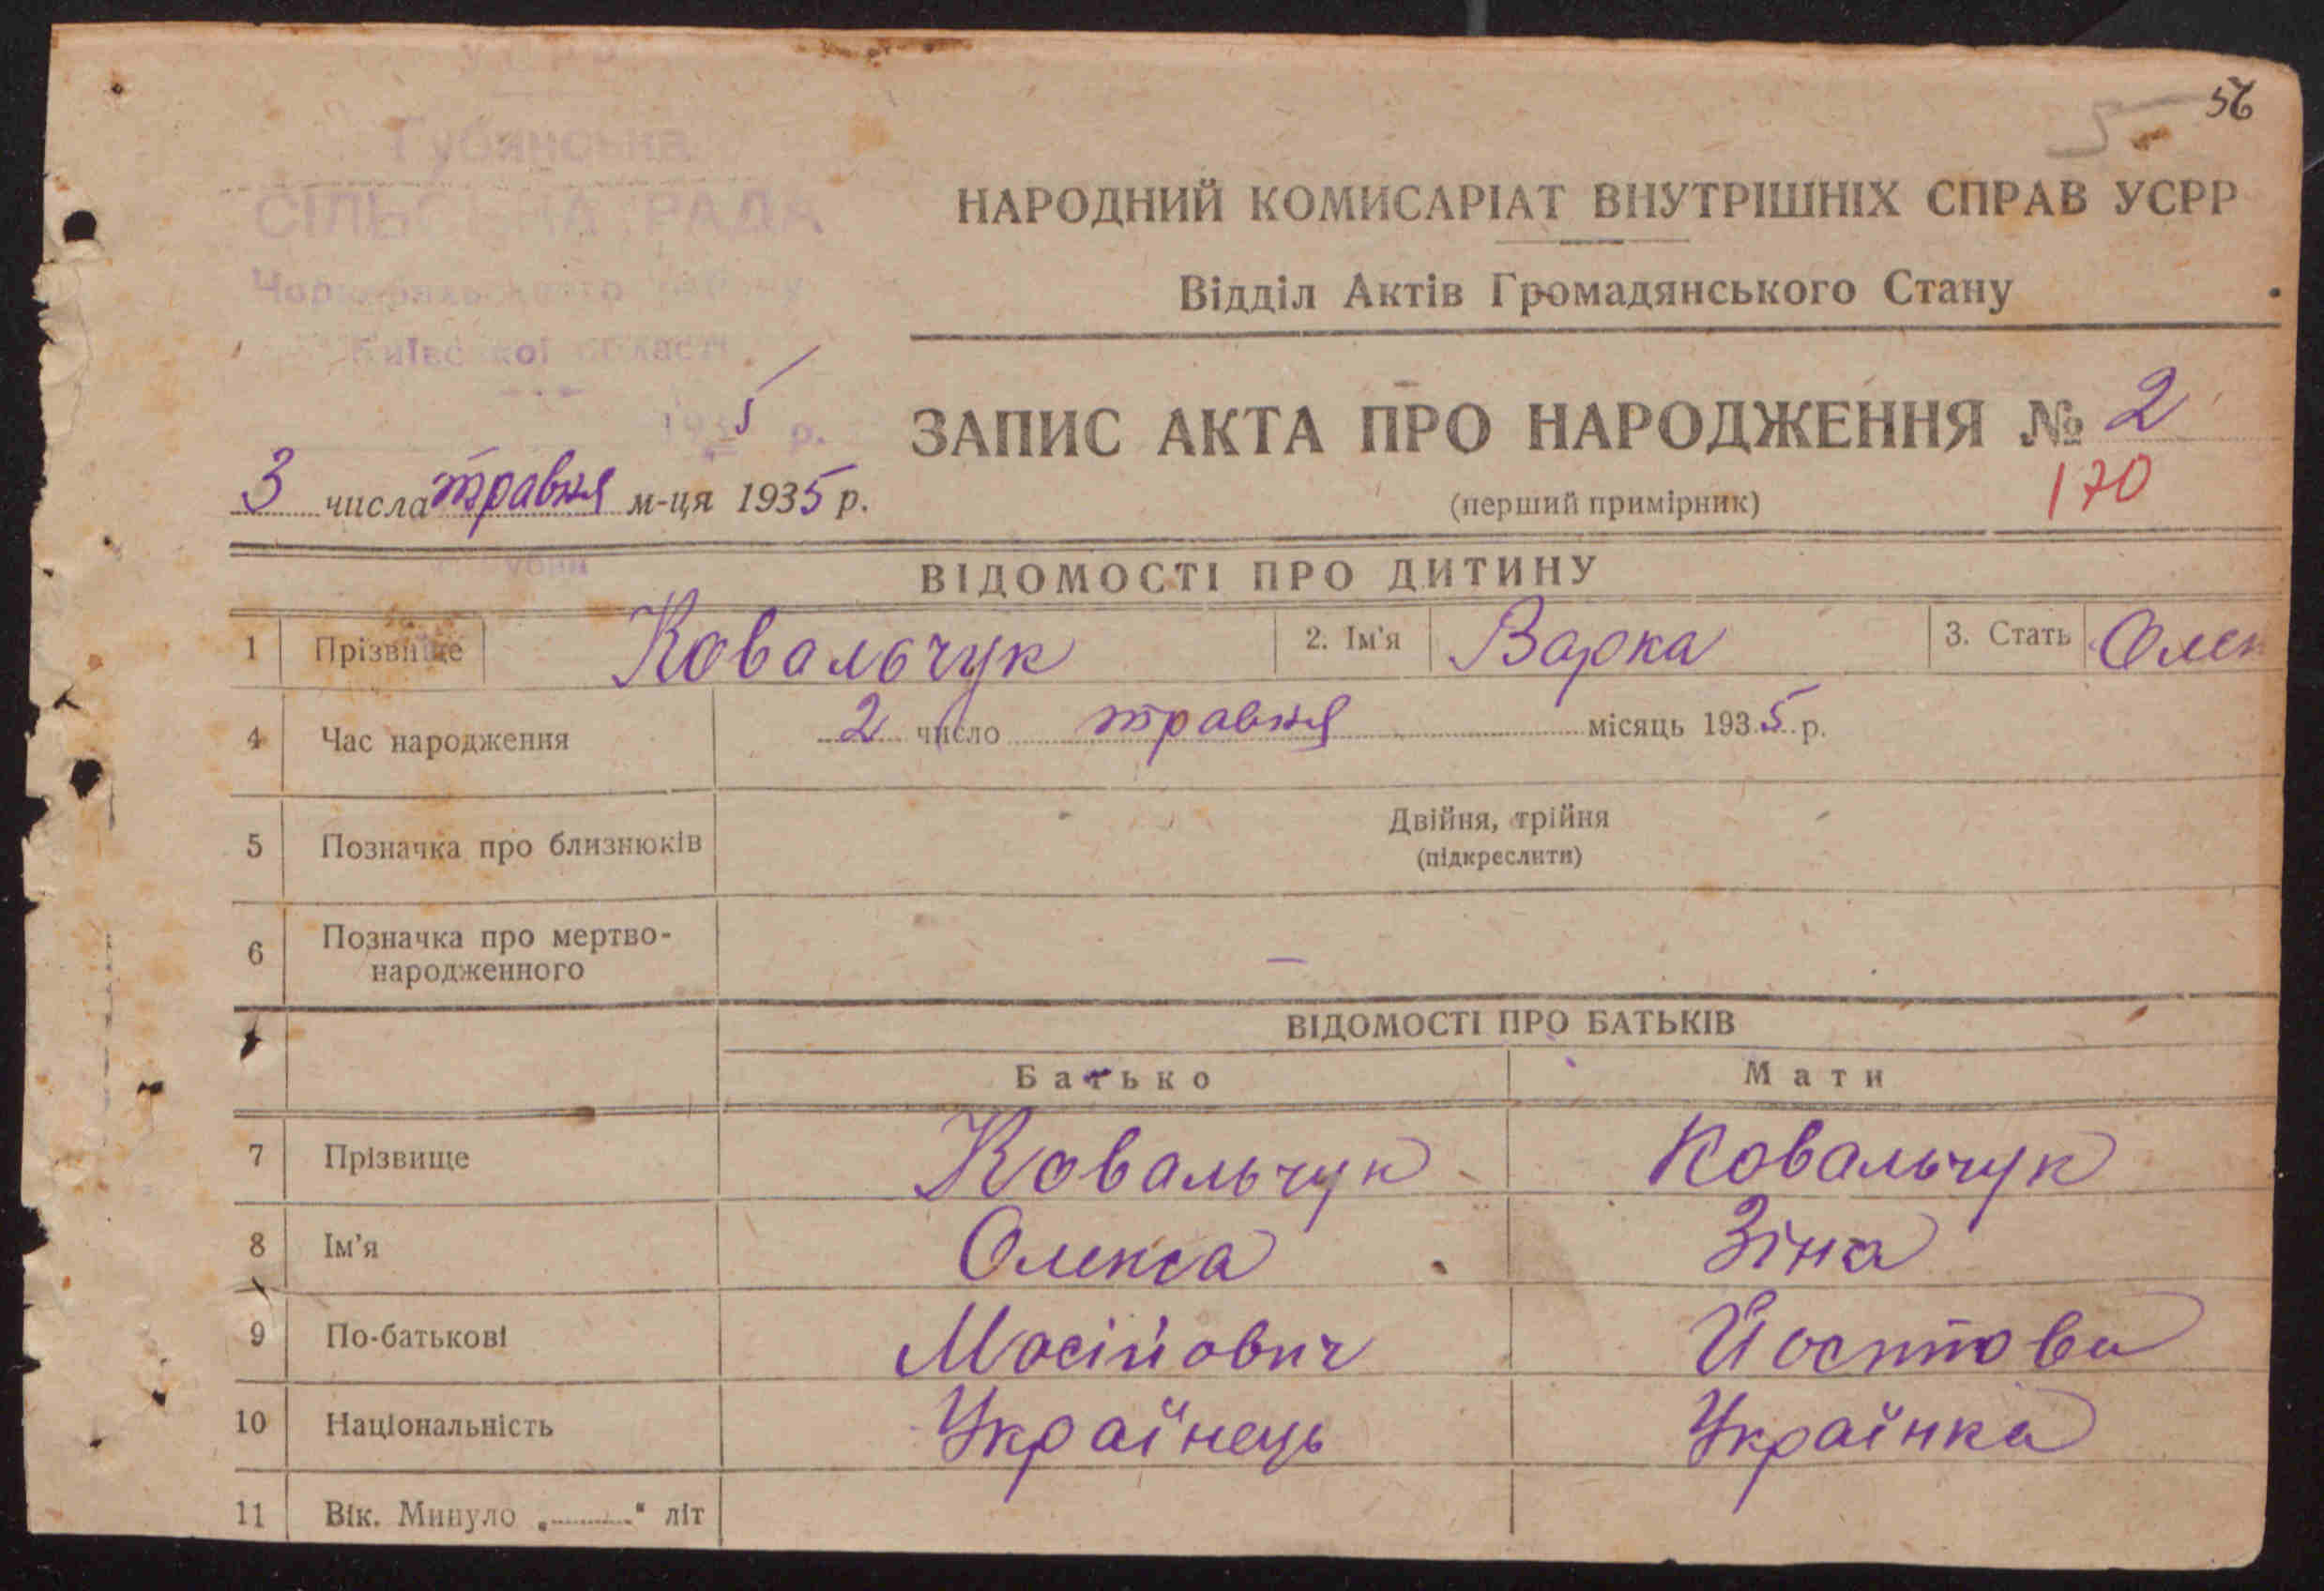 56
Губянська
СІЛЬСЬКА РАДА
Київської області
5 р.
НАРОДНИЙ КОМИСАРІАТ ВНУТРІШНІХ СПРАВ УСРР
Відділ Актів Громадянського Стану
ЗАПИС АКТА ПРО НАРОДЖЕННЯ № 2
3 числа травня м-ця 1935 р.
(перший примірник)
170
ВІДОМОСТІ ПРО ДИТИНУ
1 Прізвище Ковальчук 2. Ім'я Варка 3. Стать
4 Час народження 2 число травня місяць 1935 р.
5 Позначка про близнюків Двійня, трійня
(підкреслити)
6 Позначка про мертво-
народженного —
ВІДОМОСТІ ПРО БАТЬКІВ
Батько Мати
7 Прізвище Ковальчук Ковальчук
8 Ім'я Олекса Зіна
9 По-батькові
10 Національність Українець Українка
11 Вік. Минуло „ " літ